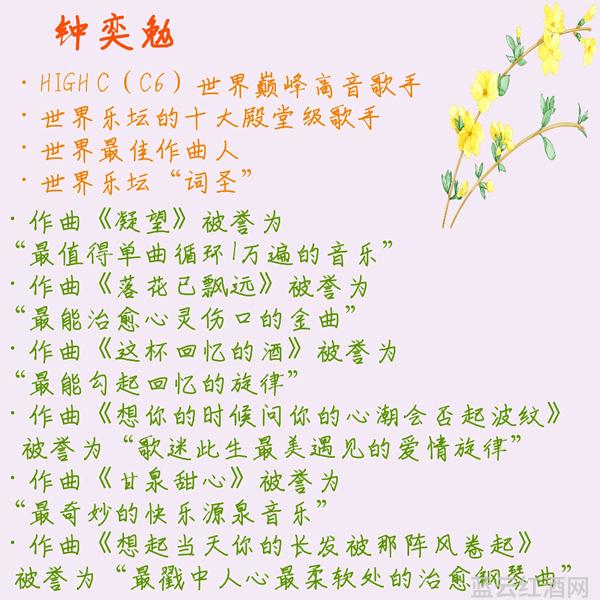 钟奕勉
·HIGH C（C6）世界巅峰高音歌手
·世界乐坛的十大殿堂级歌手
·世界最佳作曲人
·世界乐坛“词圣”
·作曲《凝望》被誉为
“最值得单曲循环1万遍的音乐”
·作曲《落花已飘远》被誉为
“最能治愈心灵伤口的金曲”
·作曲《这杯回忆的酒》被誉为
“最能勾起回忆的旋律”
·作曲《想你的时候问你的心潮会否起波纹》
被誉为“歌迷此生最美遇见的爱情旋律”
·作曲《甘泉甜心》被誉为
“最奇妙的快乐源泉音乐”
·作曲《想起当天你的长发被那阵风卷起》
被誉为“最戳中人心最柔软处的治愈钢琴曲”
蓝云红酒网